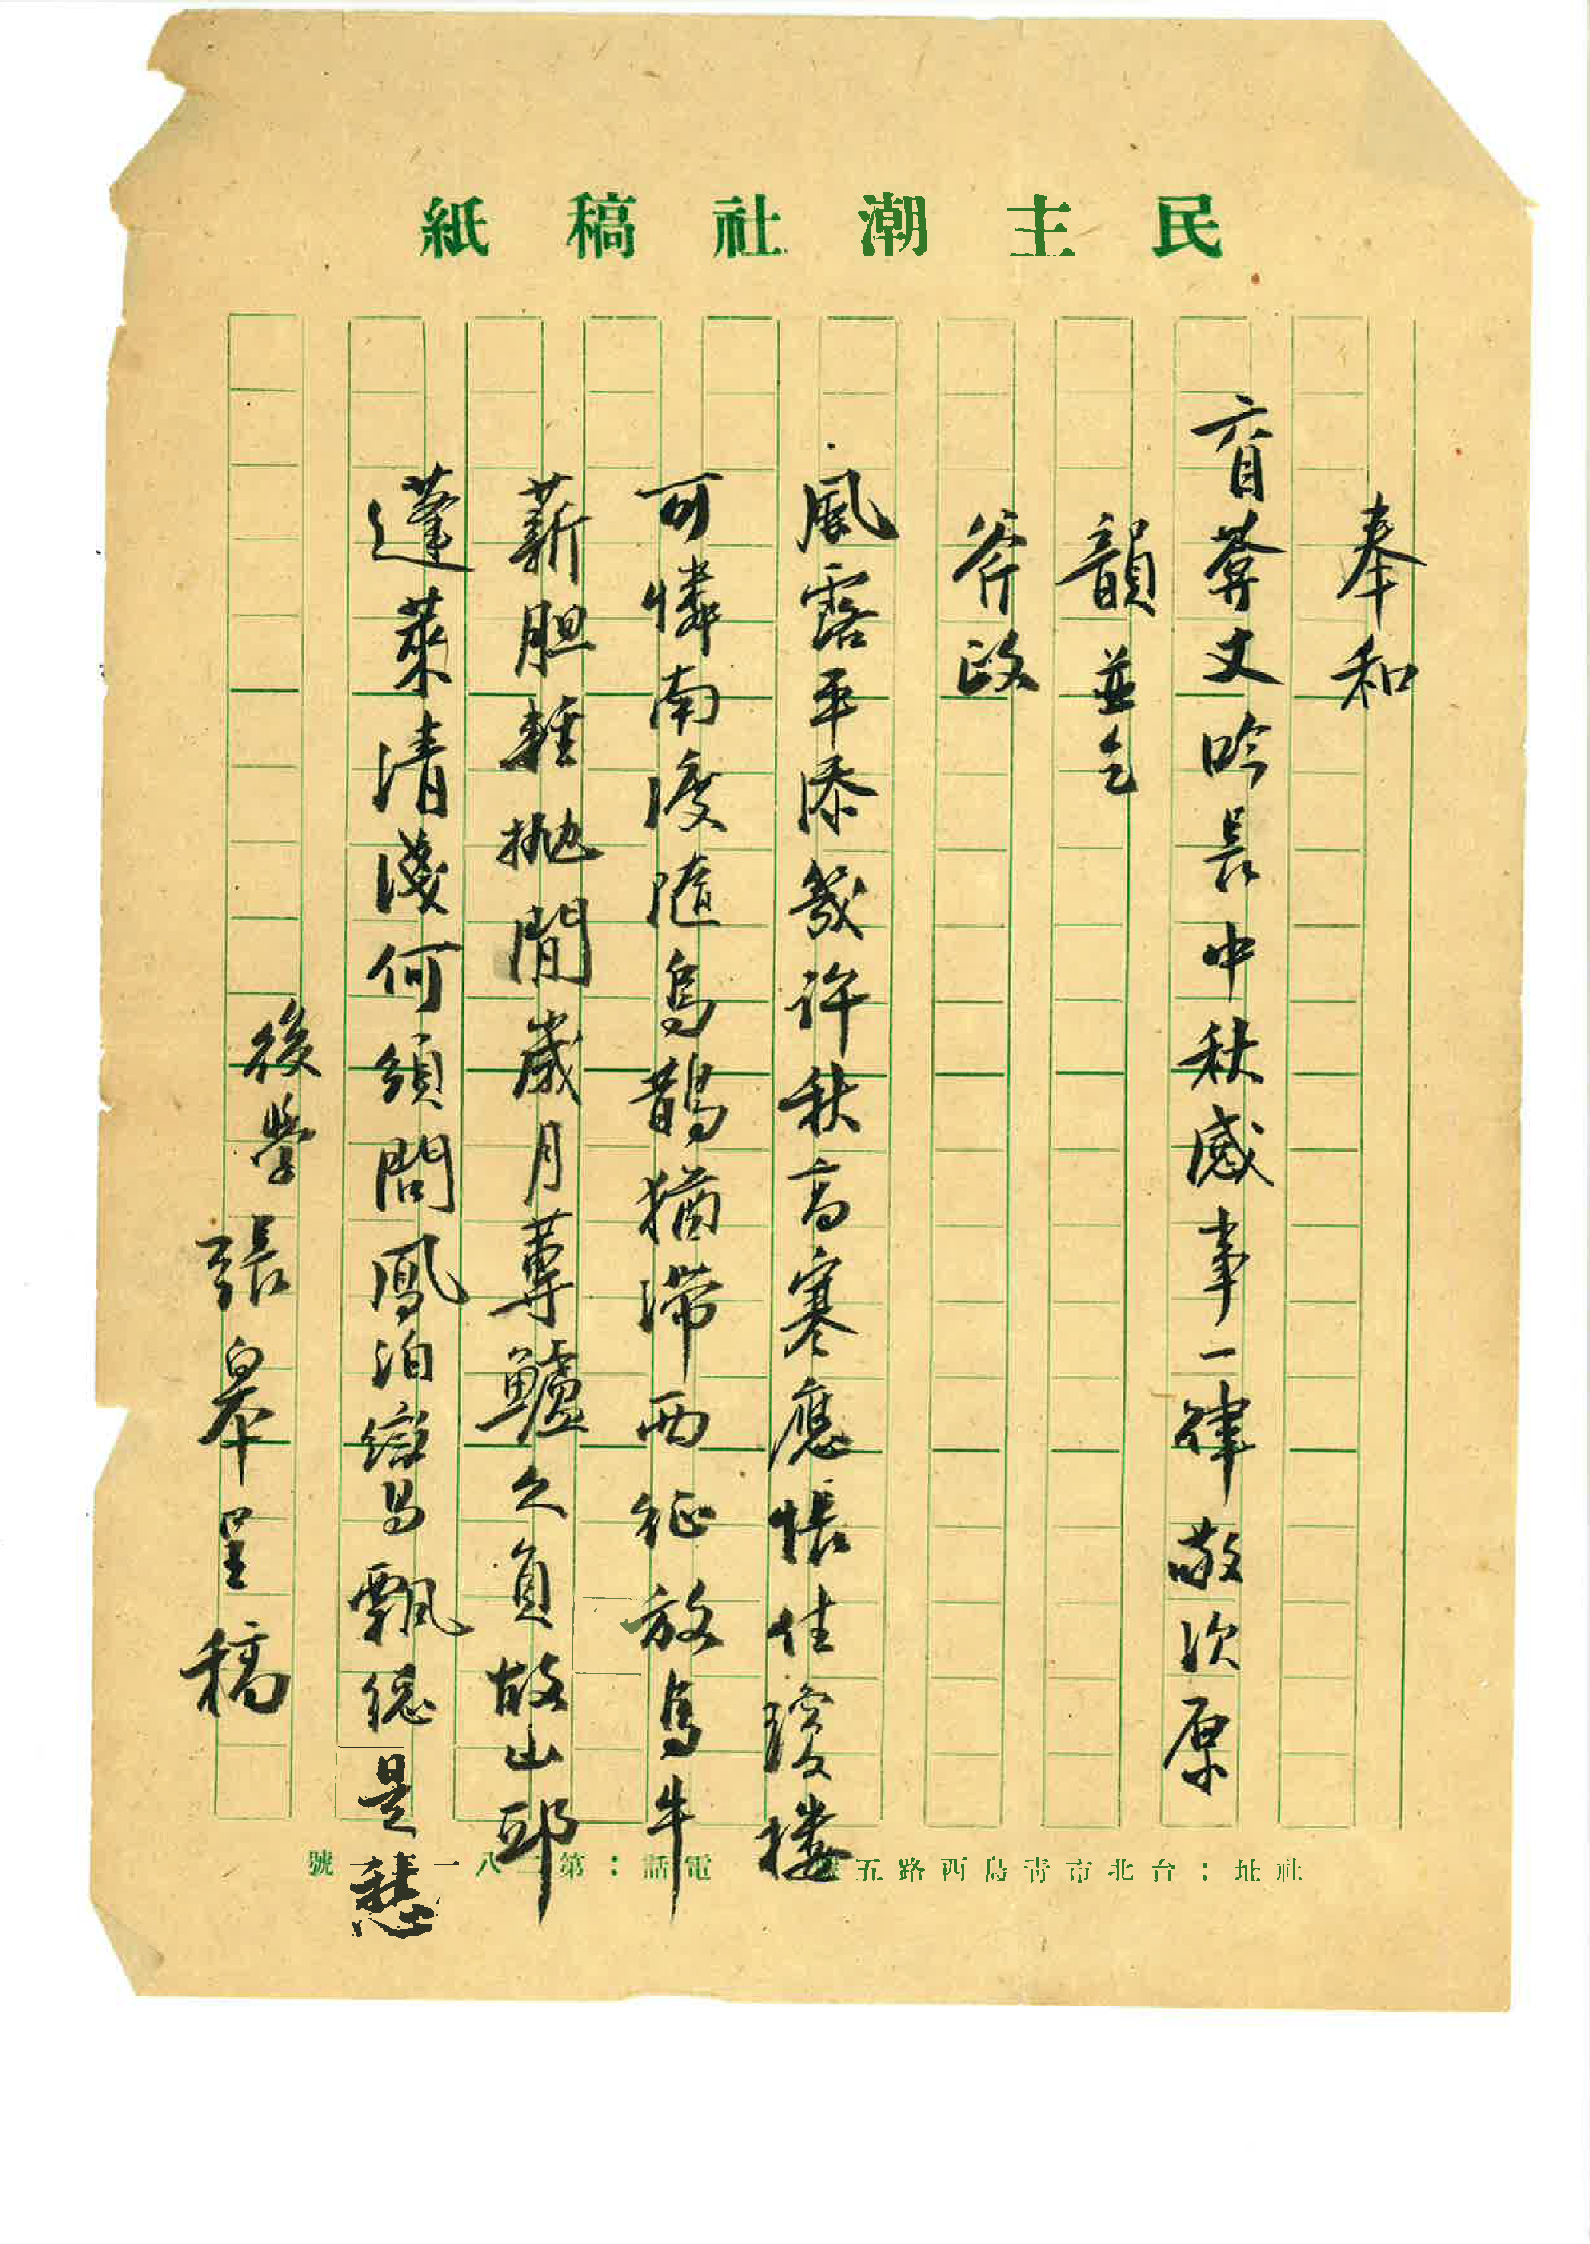 民主潮社稿紙
奉和
育蓂丈吟長中秋感事一律敬次原
韻並乞
斧政
風露平添幾許秋高寒應悵佳瓊樓
可憐南渡隨烏鵲猶滯西征放馬牛
薪胆輕拋閒歲月蓴鱸久負故山邱
蓬萊清淺何須問鳳泊鸞飄總是愁
後學張皋呈稿
社址：台北市青島西路五 電話：第二八一 號